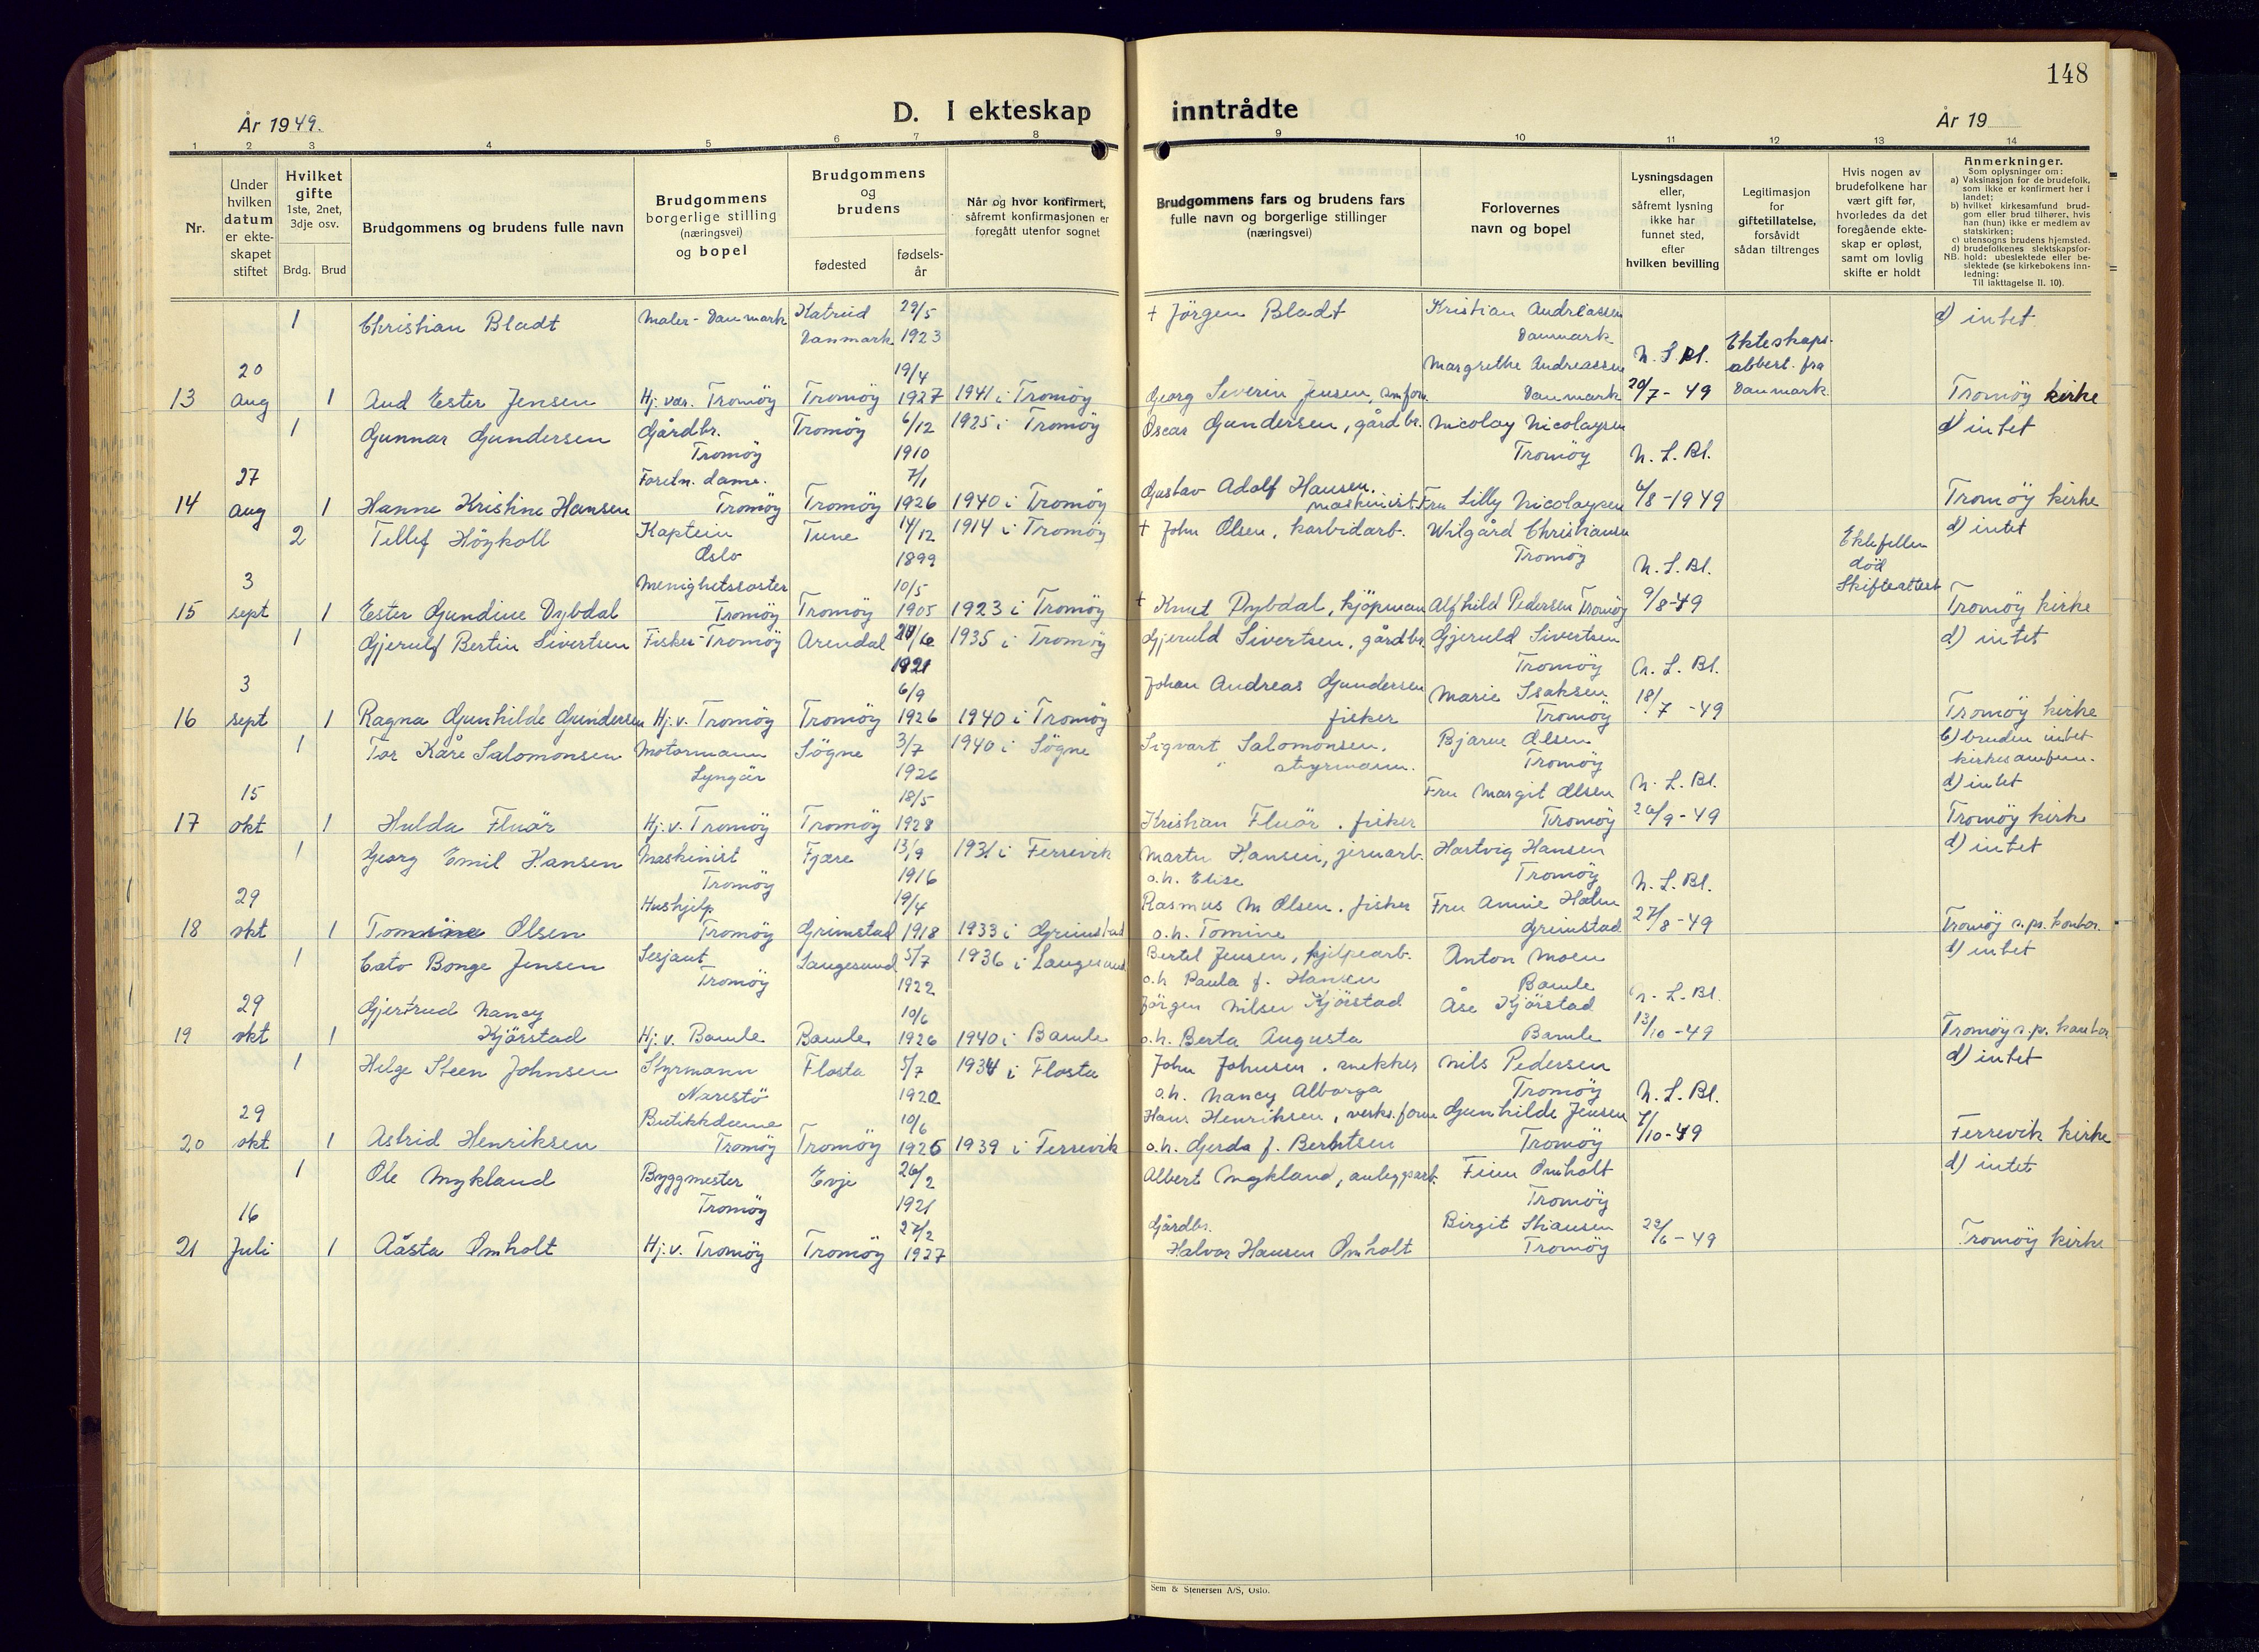 148
År 1949.
D. I ekteskap inntrådte
År 19
1 2 3 4 5 6 7 8 9 10 11 12 13 14
Nr.
Under
hvilken
datum
er ekte-
skapet
stiftet
Hvilket
gifte
1ste, 2net,
3dje osv.
Brdg. Brud
Brudgommens og brudens fulle navn
Brudgommens
borgerlige stilling
(næringsvei)
og bopel
Brudgommens
og
brudens
fødested
fødsels-
år
Når og hvor konfirmert,
såfremt konfirmasjonen er
foregått utenfor sognet
Brudgommens fars og brudens fars
fulle navn og borgerlige stillinger
(næringsvei)
Forlovernes
navn og bopel
Lysningsdagen
eller,
såfremt lysning
ikke har
funnet sted,
efter
hvilken bevilling
Legitimasjon
for
giftetillatelse,
forsåvidt
sådan tiltrenges
Hvis nogen av
brudefolkene har
vært gift før,
hvorledes da det
foregående ekte-
skap er opløst,
samt om lovlig
skifte er holdt
Anmerkninger.
Som oplysninger om:
a) Vaksinasjon for de brudefolk,
som ikke er konfirmert her i
landet;
b) hvilket kirkesamfund brud-
gom eller brud tilhører, hvis
han (hun) ikke er medlem av
statskirken;
c) utensogns brudens hjemsted.
d) brudefolkenes slektskapsfor-
NB. hold: ubeslektede eller be-
slektede (se kirkebokens inn-
ledning:
Til iakttagelse II. 10).
1 Christian Bladt Maler - Danmark Katrud 29/5 † Jörgen Bladt Kristian Andreassen d) intet
Danmark 1923 Danmark
20 19/4 Margrethe Andreassen N. L. Bl. Ekteskaps- attest. fra
13 aug 1 Aud Ester Jensen Hj. vær. Tromöy Tromöy 1927 1941 i Tromöy Georg Severin Jensen, Danmark 20/7 - 49 Danmark Tromöy kirke
1 Gunnar Gundersen Gårdbr. Tromöy 6/12 1925 i Tromöy Oscar Gundersen, gårdbr. Nicolay Nicolaysen d) intet
Tromöy 1910 Tromöy N. L. Bl.
27 Forretn. dame. 7/1 Gustav Adolf Hansen,
14 aug 1 Hanne Kristine Hansen Tromöy Tromöy 1926 1940 i Tromöy maskinist Fru Lilly Nicolaysen 6/8-1949 Tromöy kirke
2 Tellef Höykoll Kaptein Tune 14/12 1914 i Tromöy † John Olsen, karbidarb. Wilgård Christiansen d) intet
Oslo 1899 Tromöy N. L. Bl. Ektefellen död
3 Menighetssöster 10/5 Skifteattest
15 sept 1 Ester Gundine Dybdal Tromöy Tromöy 1905 1923 i Tromöy † Knut Dybdal, kjöpman Alfhild Pedersen Tromöy 9/8-49 Tromöy kirke
1 Gjerulf Bertin Sivertsen Fisker - Tromöy Arendal 1935 i Tromöy Gjeruld Sivertsen, gårdbr. Gjeruld Sivertsen d) intet
1921 Tromöy N. L. Bl.
3 6/9 Johan Andreas Gundersen Marie Isaksen
16 sept 1 Ragna Gunhilde Gundersen Hj. v. Tromöy Tromöy 1926 1940 i Tromöy fisker Tromöy 18/7 - 49 Tromöy kirke
1 Tor Kåre Salomonsen Motormann Sögne 3/7 1940 i Sögne Sigvart Salomonsen, Bjarne Olsen b) bruden intet
Lyngör 1926 styrmann. Tromöy kirkesamfunn.
15 18/5 Fru Margit Olsen N. L. Bl. d) intet
17 okt 1 Hulda Fluör Hj. v. Tromöy Tromöy 1928 Kristian Fluör. fisker Tromöy 26/9 - 49 Tromöy kirke
1 Georg Emil Hansen Maskinist Fjære 13/9 1931 i Færevik Martin Hansen, jernarb. Hartvig Hansen d) intet
Tromöy 1916 o.h. Elise Tromöy N. L. Bl.
29 Hushjelp 19/4 Rasmus M Olsen. fisker Fru Annie Holm
18 okt 1 Tomine Olsen Tromöy Grimstad 1918 1933 i Grimstad o.h. Tomine Grimstad 27/8 - 49 Tromöy s.pr. kontor.
1 Cato Bonge Jensen Sersjant Langesund 5/7 1936 i Langesund Bertel Jensen, hjelpearb. Anton Moen d) intet
Tromöy 1922 o.h Paula f. Hansen Bamle
29 Gjertrud Nancy 10/6 Jörgen Nilsen Kjörstad Åse Kjörstad N. L. Bl.
19 okt 1 Kjörstad Hj. v. Bamle Bamle 1926 1940 i Bamle o.h. Berta Augusta Bamle 13/10 - 49 Tromöy s.pr. kontor
1 Helge Steen Johnsen Styrmann Flosta 5/7 1934 i Flosta John Johnsen. snekker Nils Pedersen d) intet
Narestö 1920 o.h. Nancy Alborga Tromöy N. L. Bl.
29 Butikkdame 10/6 Hans Henriksen, verks.form Gunhilde Jensen
20 okt 1 Astrid Henriksen Tromöy Tromöy 1925 1939 i Færevik o.h. Gerda f. Berntsen Tromöy 7/10-49 Færevik kirke
1 Ole Mykland Byggmester Evje 26/2 Albert Mykland, anleggsarb. Finn Omholt d) intet
Tromöy 1921 Tromöy
16 27/2 Gårdbr. Birgit Stiansen
21 Juli 1 Aåsta Omholt Hj. v. Tromöy Tromöy 1927 Halvor Hansen Omholt Tromöy 22/6 - 49 Tromöy kirke
Sem & Stenersen A/S, Oslo.